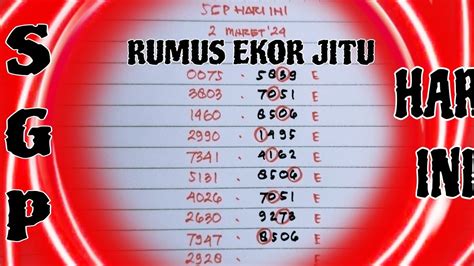 SGP HARI INI
2 MARET '24
RUMUS EKOR JITU
SGP
HAR
INI
0075 - 5839 E
3803 - 7051 E
1460 - 8506 E
2990 - 1495 E
7341 - 4162 E
5131 - 8506 E
4026 - 7051 E
2630 - 9273 E
7947 - 8506 E
2928 -